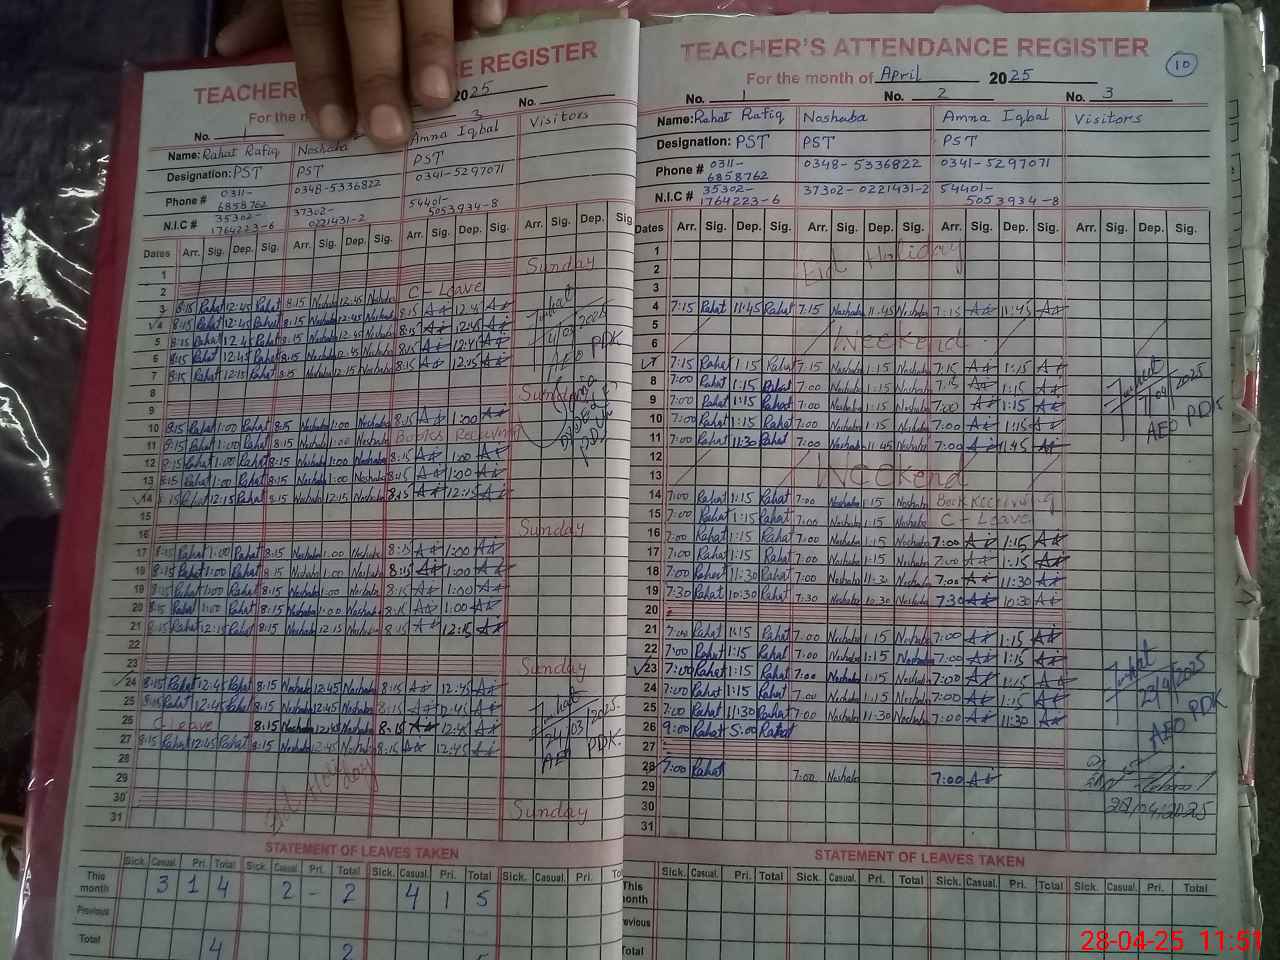 TEACHER'S ATTENDANCE REGISTER
For the month of April 2025
10
No. 1 No. 2 No. 3
Name: Rahat Rafiq Noshaba Amna Iqbal Visitors
Designation: PST PST PST
Phone # 0311-6858762 0348-5336822 0341-5297071
N.I.C # 35302-1764223-6 37302-0221431-2 54401-5053934-8
Dates Arr. Sig. Dep. Sig. Arr. Sig. Dep. Sig. Arr. Sig. Dep. Sig. Arr. Sig. Dep. Sig.
1
2 Eid Holiday
3
4 7:15 Rahat 11:45 Rahat 7:15 Noshaba 11:45 Noshaba 7:15 11:45
5
6 Weekend
7 7:15 Rahat 1:15 Rahat 7:15 Noshaba 1:15 Noshaba 7:15 1:15
8 7:00 Rahat 1:15 Rahat 7:00 Noshaba 1:15 Noshaba 1:15
9 7:00 Rahat 1:15 Rahat 7:00 Noshaba 1:15 Noshaba 7:00 1:15
10 7:00 Rahat 1:15 Rahat 7:00 Noshaba 1:15 Noshaba 7:00 1:15
11 7:00 Rahat 11:30 Rahat 7:00 Noshaba 11:45 Noshaba 7:00 11:45
7/04/2025
AEO PDK
12
13 Weekend
14 7:00 Rahat 1:15 Rahat 7:00 Noshaba 1:15 Noshaba Book Receiving
15 7:00 Rahat 1:15 Rahat 7:00 Noshaba 1:15 Noshaba C-Leave
16 7:00 Rahat 1:15 Rahat 7:00 Noshaba 1:15 Noshaba 7:00 1:15
17 7:00 Rahat 1:15 Rahat 7:00 Noshaba 1:15 Noshaba 7:00 1:15
18 7:00 Rahat 11:30 Rahat 7:00 Noshaba 11:30 Noshaba 7:00 11:30
19 7:30 Rahat 10:30 Rahat 7:30 Noshaba 10:30 Noshaba 7:30 10:30
20
21 7:00 Rahat 1:15 Rahat 7:00 Noshaba 1:15 Noshaba 7:00 1:15
22 7:00 Rahat 1:15 Rahat 7:00 Noshaba 1:15 Noshaba 7:00 1:15
23 7:00 Rahat 1:15 Rahat 7:00 Noshaba 1:15 Noshaba 7:00 1:15
24 7:00 Rahat 1:15 Rahat 7:00 Noshaba 1:15 Noshaba 7:00 1:15
25 7:00 Rahat 11:30 Rahat 7:00 Noshaba 11:30 Noshaba 7:00 11:30
26 9:00 Rahat 5:00 Rahat
23/4/2025
AEO PDK
27
28 7:00 Rahat 7:00 Noshaba 7:00
29
30
31
28/04/2025
STATEMENT OF LEAVES TAKEN
Sick. Casual. Pri. Total Sick. Casual. Pri. Total Sick. Casual. Pri. Total Sick. Casual. Pri. Total
REGISTER
2025
For the
No. 1 3 No.
Name: Rahat Rafiq Noshaba Amna Iqbal Visitors
Designation: PST PST PST
Phone # 0311-6858762 0348-5336822 0341-5297071
N.I.C # 35302-1764223-6 37302-0221431-2 54401-5053934-8
Dates Arr. Sig. Dep. Sig. Arr. Sig. Dep. Sig. Arr. Sig. Dep. Sig. Arr. Sig. Dep. Sig
1
2 Sunday
3 8:15 Rahat 12:45 Rahat 8:15 Noshaba 12:45 Noshaba C-Leave
4 8:15 Rahat 12:45 Rahat 8:15 Noshaba 12:45 Noshaba 8:15 12:45
5 8:15 Rahat 12:45 Rahat 8:15 Noshaba 12:45 Noshaba 8:15 12:45
6 8:15 Rahat 12:45 Rahat 8:15 Noshaba 12:45 Noshaba 8:15 12:45
7 8:15 Rahat 12:15 Rahat 8:15 Noshaba 12:15 Noshaba 8:15 12:15
AEO PDK
8
9 Sunday
10 8:15 Rahat 1:00 Rahat 8:15 Noshaba 1:00 Noshaba 8:15 1:00
11 8:15 Rahat 1:00 Rahat 8:15 Noshaba 1:00 Noshaba Books Receiving
12 8:15 Rahat 1:00 Rahat 8:15 Noshaba 1:00 Noshaba 8:15 1:00
13 8:15 Rahat 1:00 Rahat 8:15 Noshaba 1:00 Noshaba 8:15 1:00
14 8:15 Rahat 12:15 Rahat 8:15 Noshaba 12:15 Noshaba 8:15 12:15
15
16 Sunday
17 8:15 Rahat 1:00 Rahat 8:15 Noshaba 1:00 Noshaba 8:15 1:00
18 8:15 Rahat 1:00 Rahat 8:15 Noshaba 1:00 Noshaba 8:15 1:00
19 8:15 Rahat 1:00 Rahat 8:15 Noshaba 1:00 Noshaba 8:15 1:00
20 8:15 Rahat 1:00 Rahat 8:15 Noshaba 1:00 Noshaba 8:15 1:00
21 8:15 Rahat 12:15 Rahat 8:15 Noshaba 12:15 Noshaba 8:15 12:15
22
23 Sunday
24 8:15 Rahat 12:45 Rahat 8:15 Noshaba 12:45 Noshaba 8:15 12:45
25 8:15 Rahat 12:45 Rahat 8:15 Noshaba 12:45 Noshaba 8:15 12:45
26 C-Leave 8:15 Noshaba 12:45 Noshaba 8:15 12:45
27 8:15 Rahat 12:45 Rahat 8:15 Noshaba 12:45 Noshaba 8:15 12:45
24/03/2025
AEO PDK.
28
29 Eid Holiday
30
31 Sunday
STATEMENT OF LEAVES TAKEN
Sick. Casual. Pri. Total Sick. Casual. Pri. Total Sick. Casual. Pri. Total Sick. Casual. Pri.
This month 3 1 4 2 - 2 4 1 5
Previous
Total 4 2
28-04-25 11:51